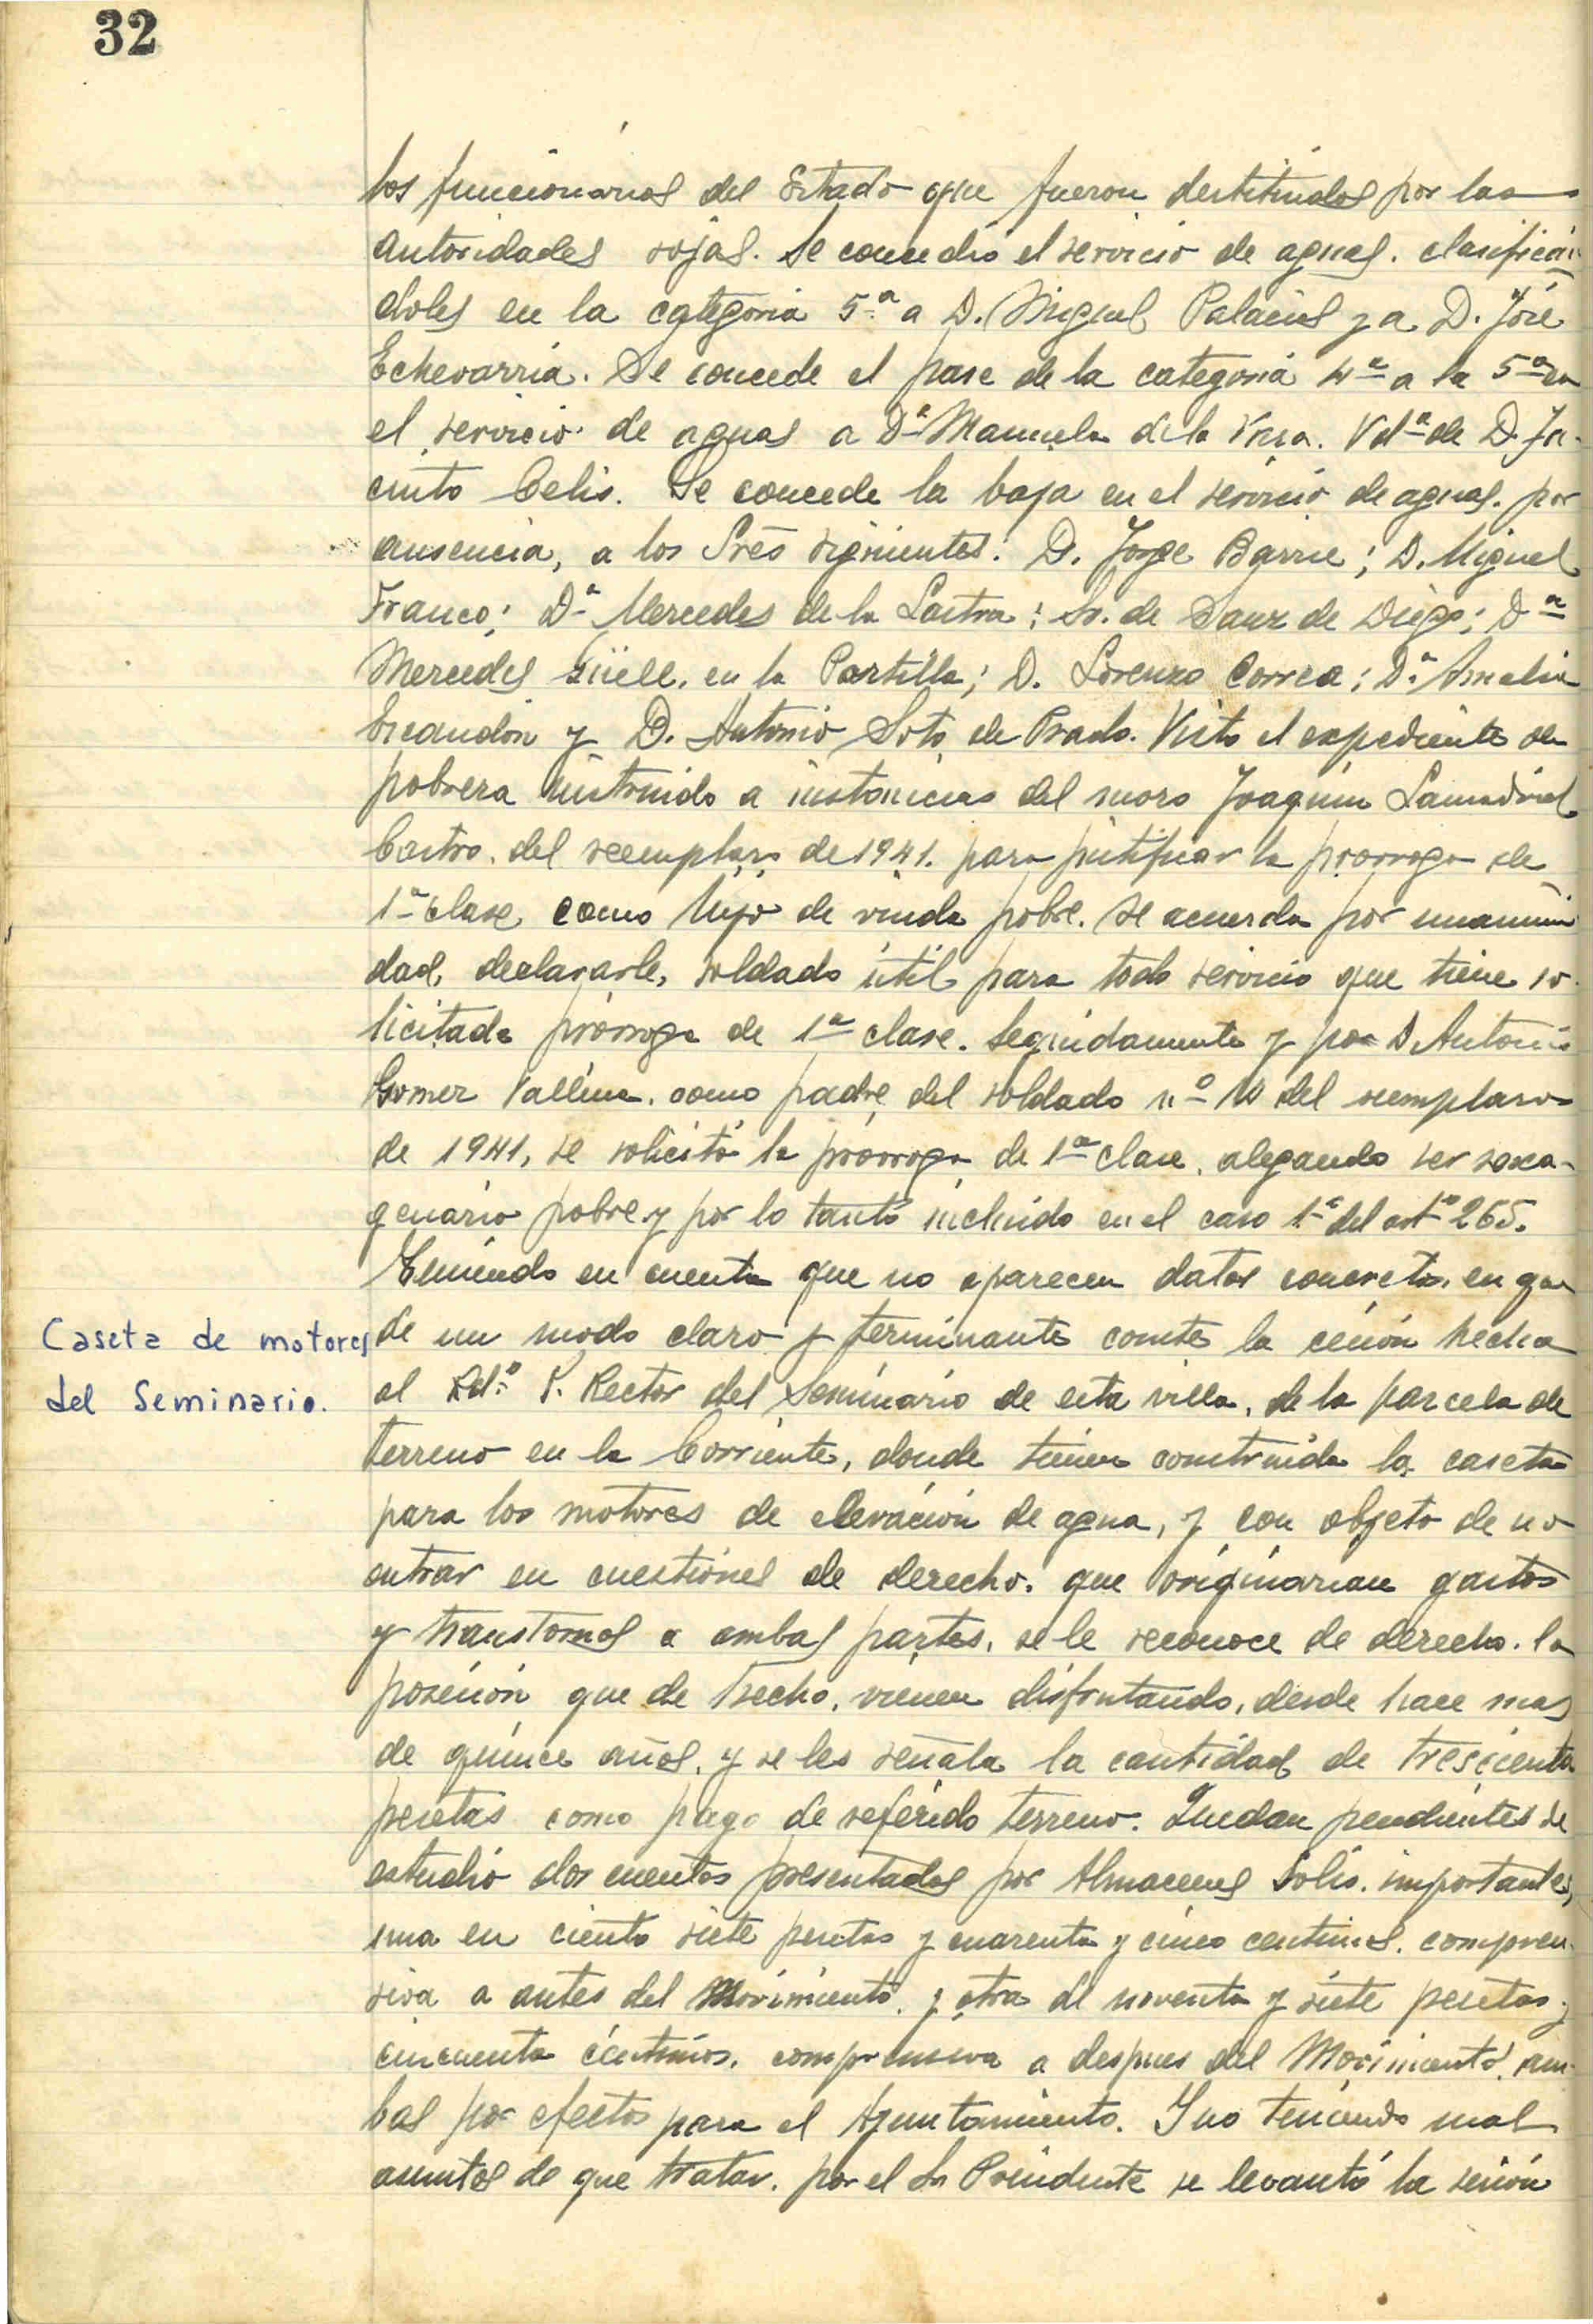 32
los funcionarios del Estado que fueron destituidos por las
autoridades rojas. Se concedió el servicio de aguas. clasificán
doles en la categoria 5ª a D. Miguel Palacios y a D. José
Echevarria. Se concede el pase de la categoria 4ª a la 5ª en
el servicio de aguas a Dª Manuela de la Vega. Vdª de D. Ja-
cinto Celis. Se concede la baja en el servicio de aguas. por
ausencia, a los Sres siguientes: D. Jorge Barrie; D. Miguel
Franco; Dª Mercedes de la Lastra; Sr. de Sanz de Diego; Dª
Mercedes Güell. en la Portilla; D. Lorenzo Correa; Dª Amelia
y D. Antonio Soto de Prado. Visto el expediente de
pobreza instruido a instancias del mozo Joaquin Lamadrid
Castro. del reemplazo de 1941. para justificar la prorroga de
1ª clase, como hijo de viuda pobre. se acuerda por unanimi
dad, declararle, soldado útil para todo servicio que tiene so-
licitada prórroga de 1ª clase. Seguidamente y por D. Antonio
Gomez Vallina. como padre del soldado nº 10 del reemplazo
de 1941, se solicitó la prorroga de 1ª clase, alegando ser sexa-
genario pobre y por lo tanto incluido en el caso 1º del artº 265.
Teniendo en cuenta que no aparecen datos concretos. en que
Caseta de motores
del Seminario.
de un modo claro y terminante conste la cesión hecha
al Rdº P. Rector del Seminario de esta villa, de la parcela de
terreno en la Corriente, donde tienen construida la caseta
para los motores de elevación de agua, y con objeto de no
entrar en cuestiones de derecho. que originarian gastos
y transtornos a ambas partes, se le reconoce de derecho. la
posesión que de hecho, vienen disfrutando, desde hace mas
de quince años, y se les señala la cantidad de trescientas
pesetas como pago de referido terreno. Quedan pendientes de
estudio dos cuentas presentadas por Almacenes Solis. importantes,
una en ciento siete pesetas y cuarenta y cinco centimos. compren-
siva a antes del Movimiento, y otra de noventa y siete pesetas y
cincuenta céntimos, comprensiva a despues del Movimiento, am-
bas por efectos para el Ayuntamiento. Y no teniendo mas
asuntos de que tratar. por el Sr Presidente se levantó la sesión